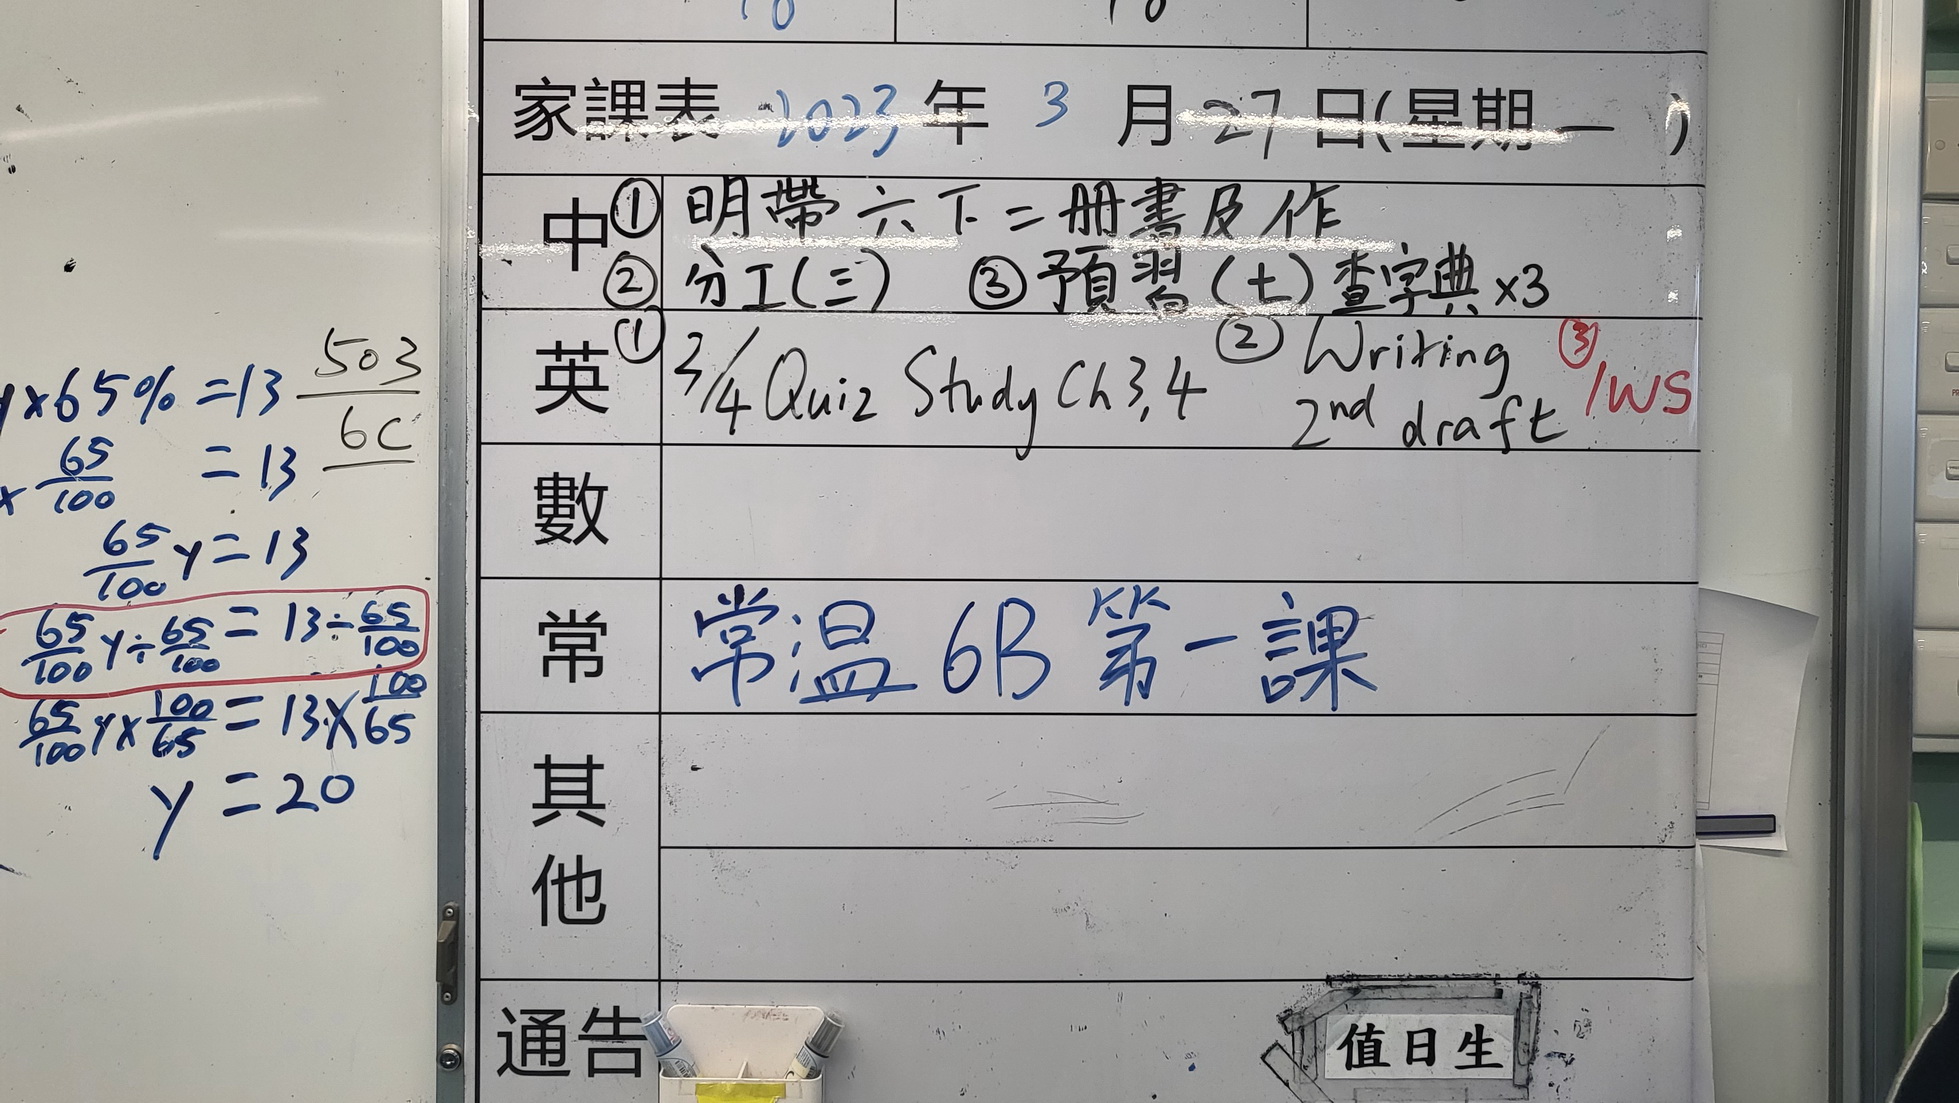 家課表 2023 年 3 月 27 日(星期一)
中 ① 明帶六下二册書及作
② 分工(三) ③ 預習(十) 查字典×3
英 ① 3/4 Quiz Study Ch 3,4 ② Writing 2nd draft ③ /WS
數
常 常溫 6B 第一課
其他
通告
值日生
503
6C
y×65% =13
× 65/100 = 13
65/100 y = 13
65/100 y ÷ 65/100 = 13 ÷ 65/100
65/100 y × 100/65 = 13 × 100/65
y = 20